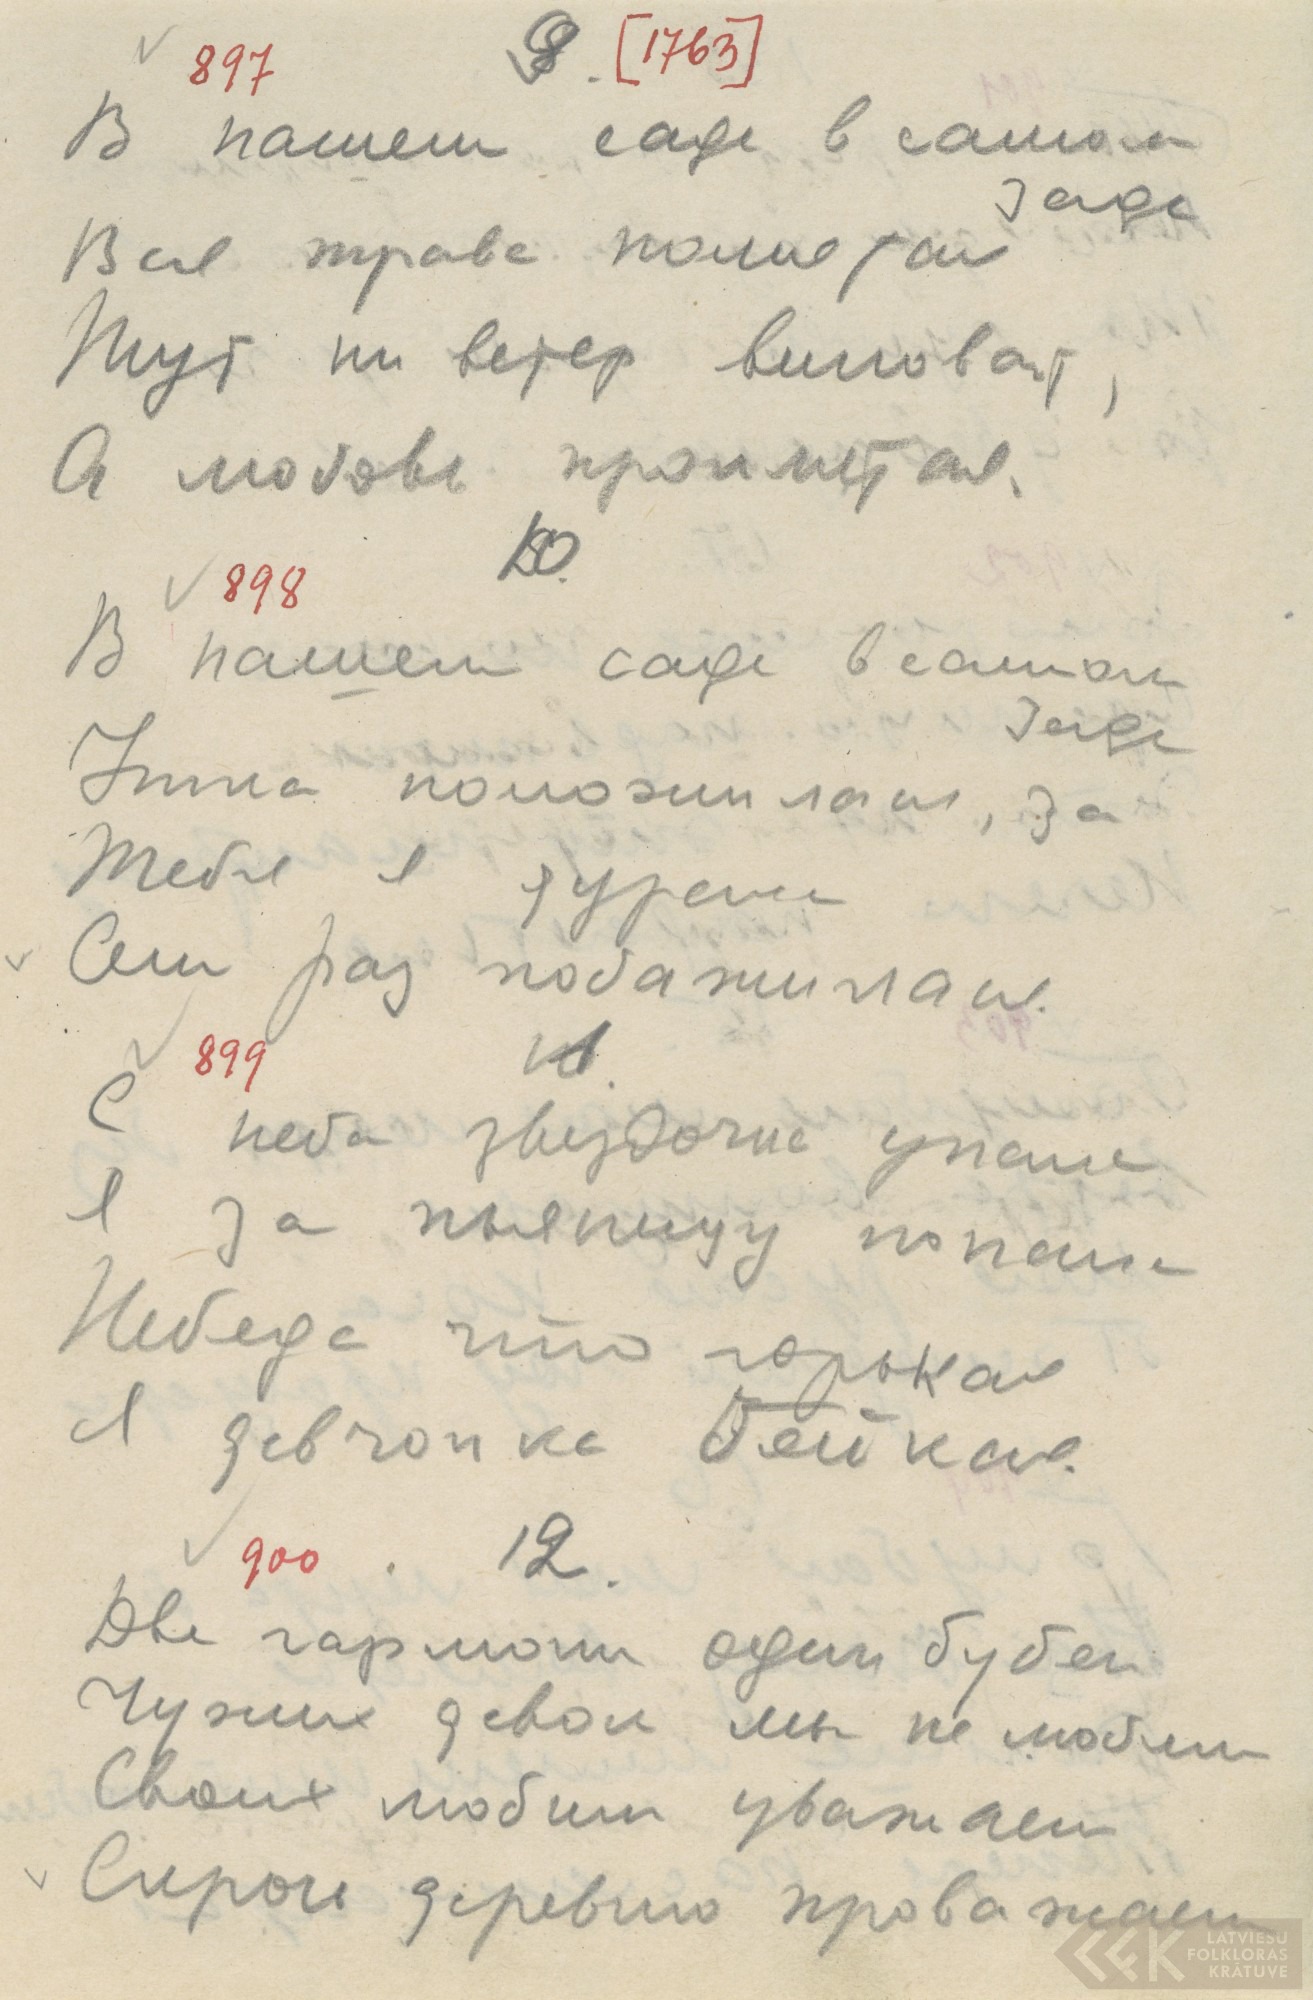 897 9. [1763]
В нашем саде в самом
заде
Вся трава помятая
Тут ни ветер виноват,
А любовь проклятая.
898 10.
В нашем саде в самом
заде
положилася, за
Тебя я дурень
Сем раз побажилася.
899 11.
С неба звездочка упала
Я за пьяницу попала
Небеда что горькая
Я девчонка бойкая.
900 12.
Две гармони один бубен
Чужих девок мы не любим
Своих любим уважаем
деревню проважаем
LATVIEŠU
FOLKLORAS
KRĀTUVE